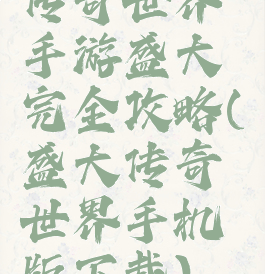 传奇世界
手游盛大
完全攻略(
盛大传奇
世界手机
版下载)